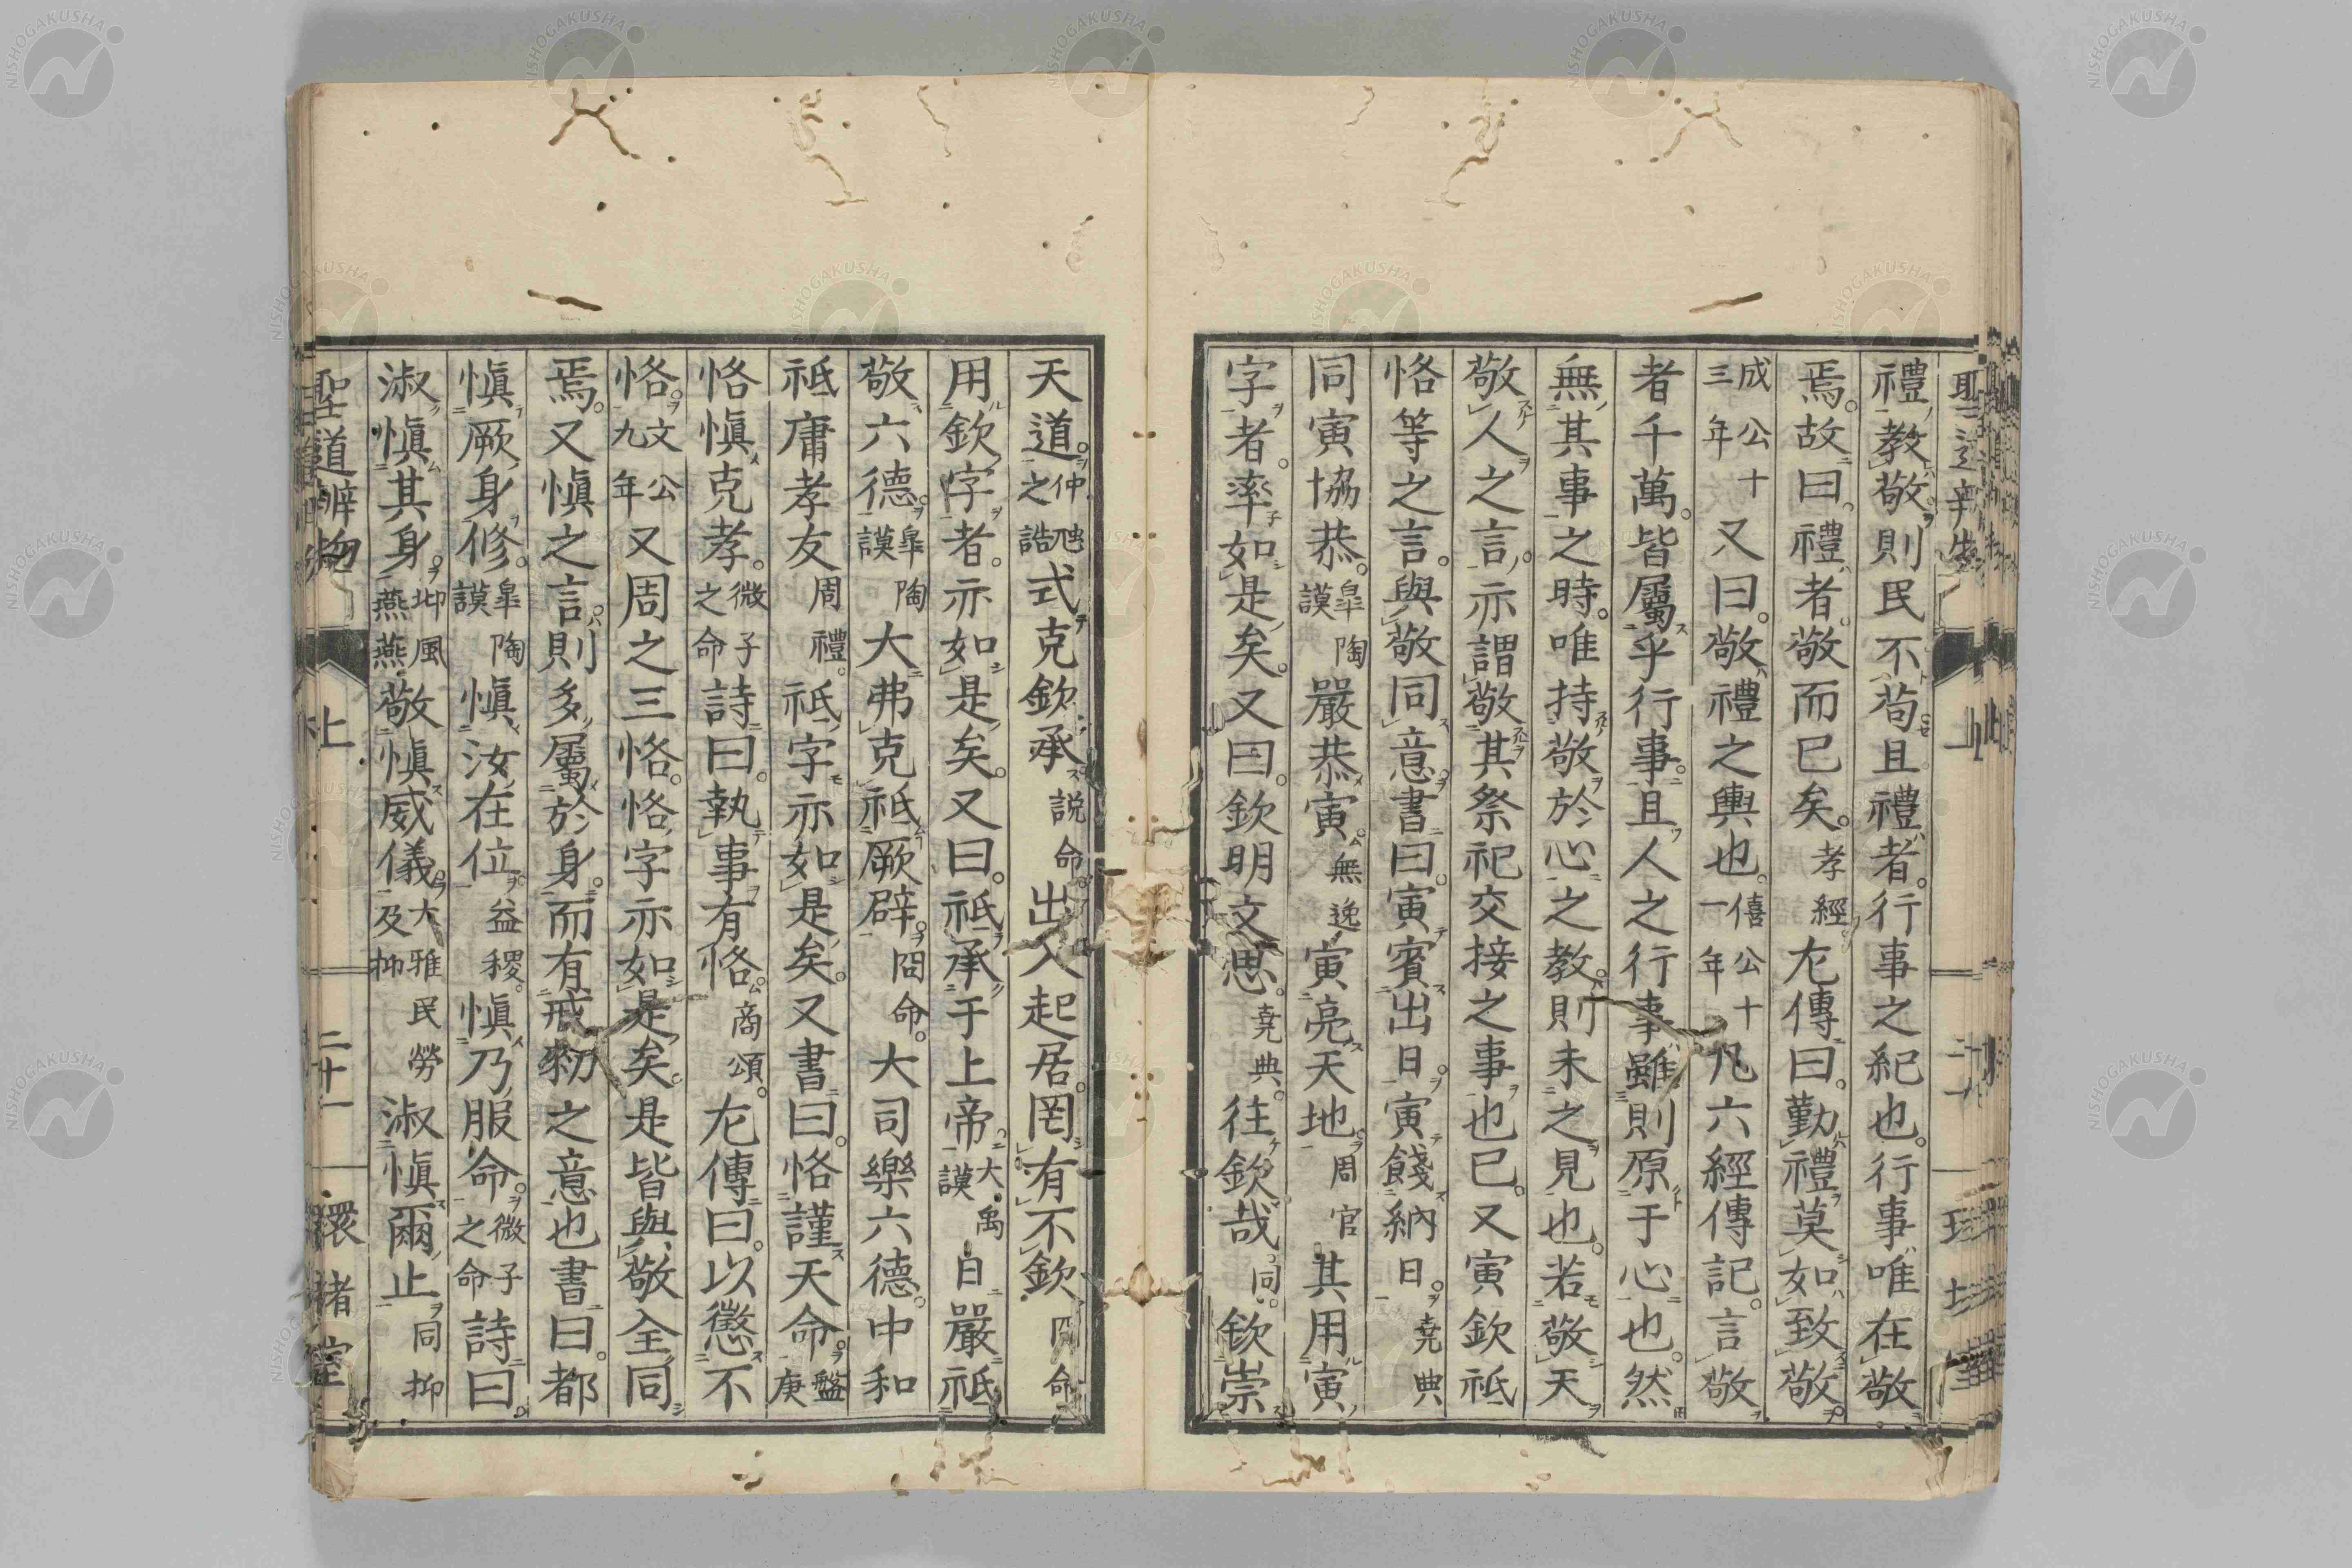 禮教敬則民不苟且禮者行事之紀也行事唯在敬
焉故曰禮者敬而已矣孝經左傳曰勤禮莫如致敬
成公十三年又曰敬禮之輿也僖公十一年凡六經傳記言敬
者千萬皆屬乎行事且人之行事雖則原于心也然
無其事之時唯持敬於心之教則未之見也若敬天
敬人之言亦謂敬其祭祀交接之事也已又寅欽祗
恪等之言與敬同意書曰寅賓出日寅餞納日堯典
同寅協恭皐陶謨嚴恭寅無逸寅亮天地周官其用寅
字者率如是矣又曰欽明文思堯典往欽哉同欽崇
天道仲虺之誥式克欽承説命出入起居罔有不欽冏命
用欽字者亦如是矣又曰祗承于上帝大禹謨日嚴祗
敬六德皐陶謨大弗克祗厥辟冏命大司樂六德中和
祗庸孝友周禮祗字亦如是矣又書曰恪謹天命盤庚
恪愼克孝微子之命詩曰執事有恪商頌左傳曰以懲不
恪文公九年又周之三恪恪字亦如是矣是皆與敬全同
焉又愼之言則多屬於身而有戒勑之意也書曰都
愼厥身修皐陶謨愼汝在位益稷愼乃服命微子之命詩曰
淑愼其身邶風燕燕敬愼威儀大雅民勞及抑淑愼爾止同抑
聖道辨物 上 二十一 環堵室